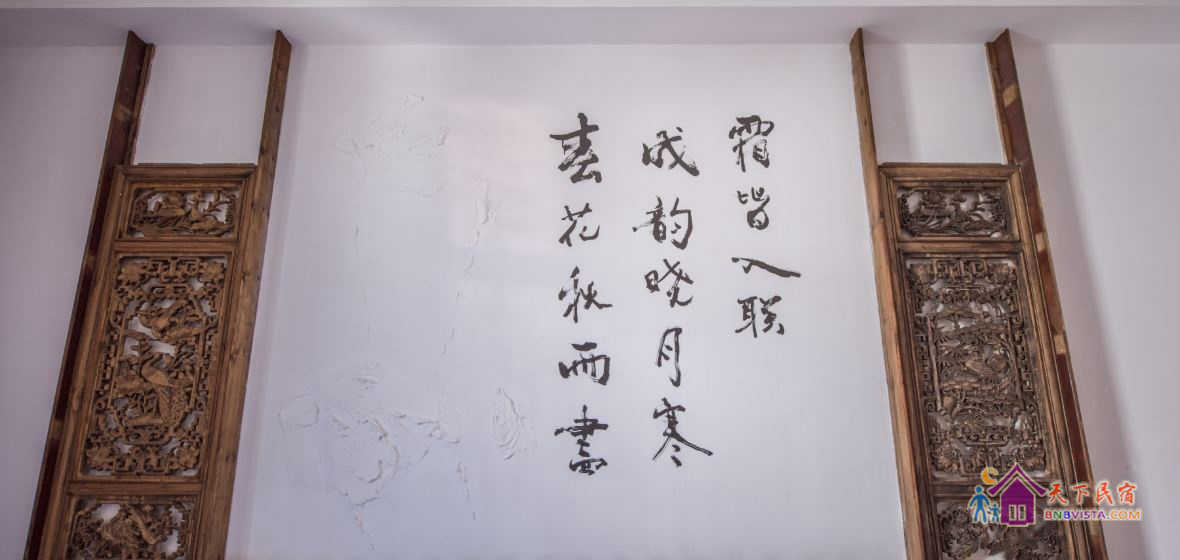 春花秋雨盡
成韵晓月寒
霜皆入联
天下民宿
BNBVISTA.COM